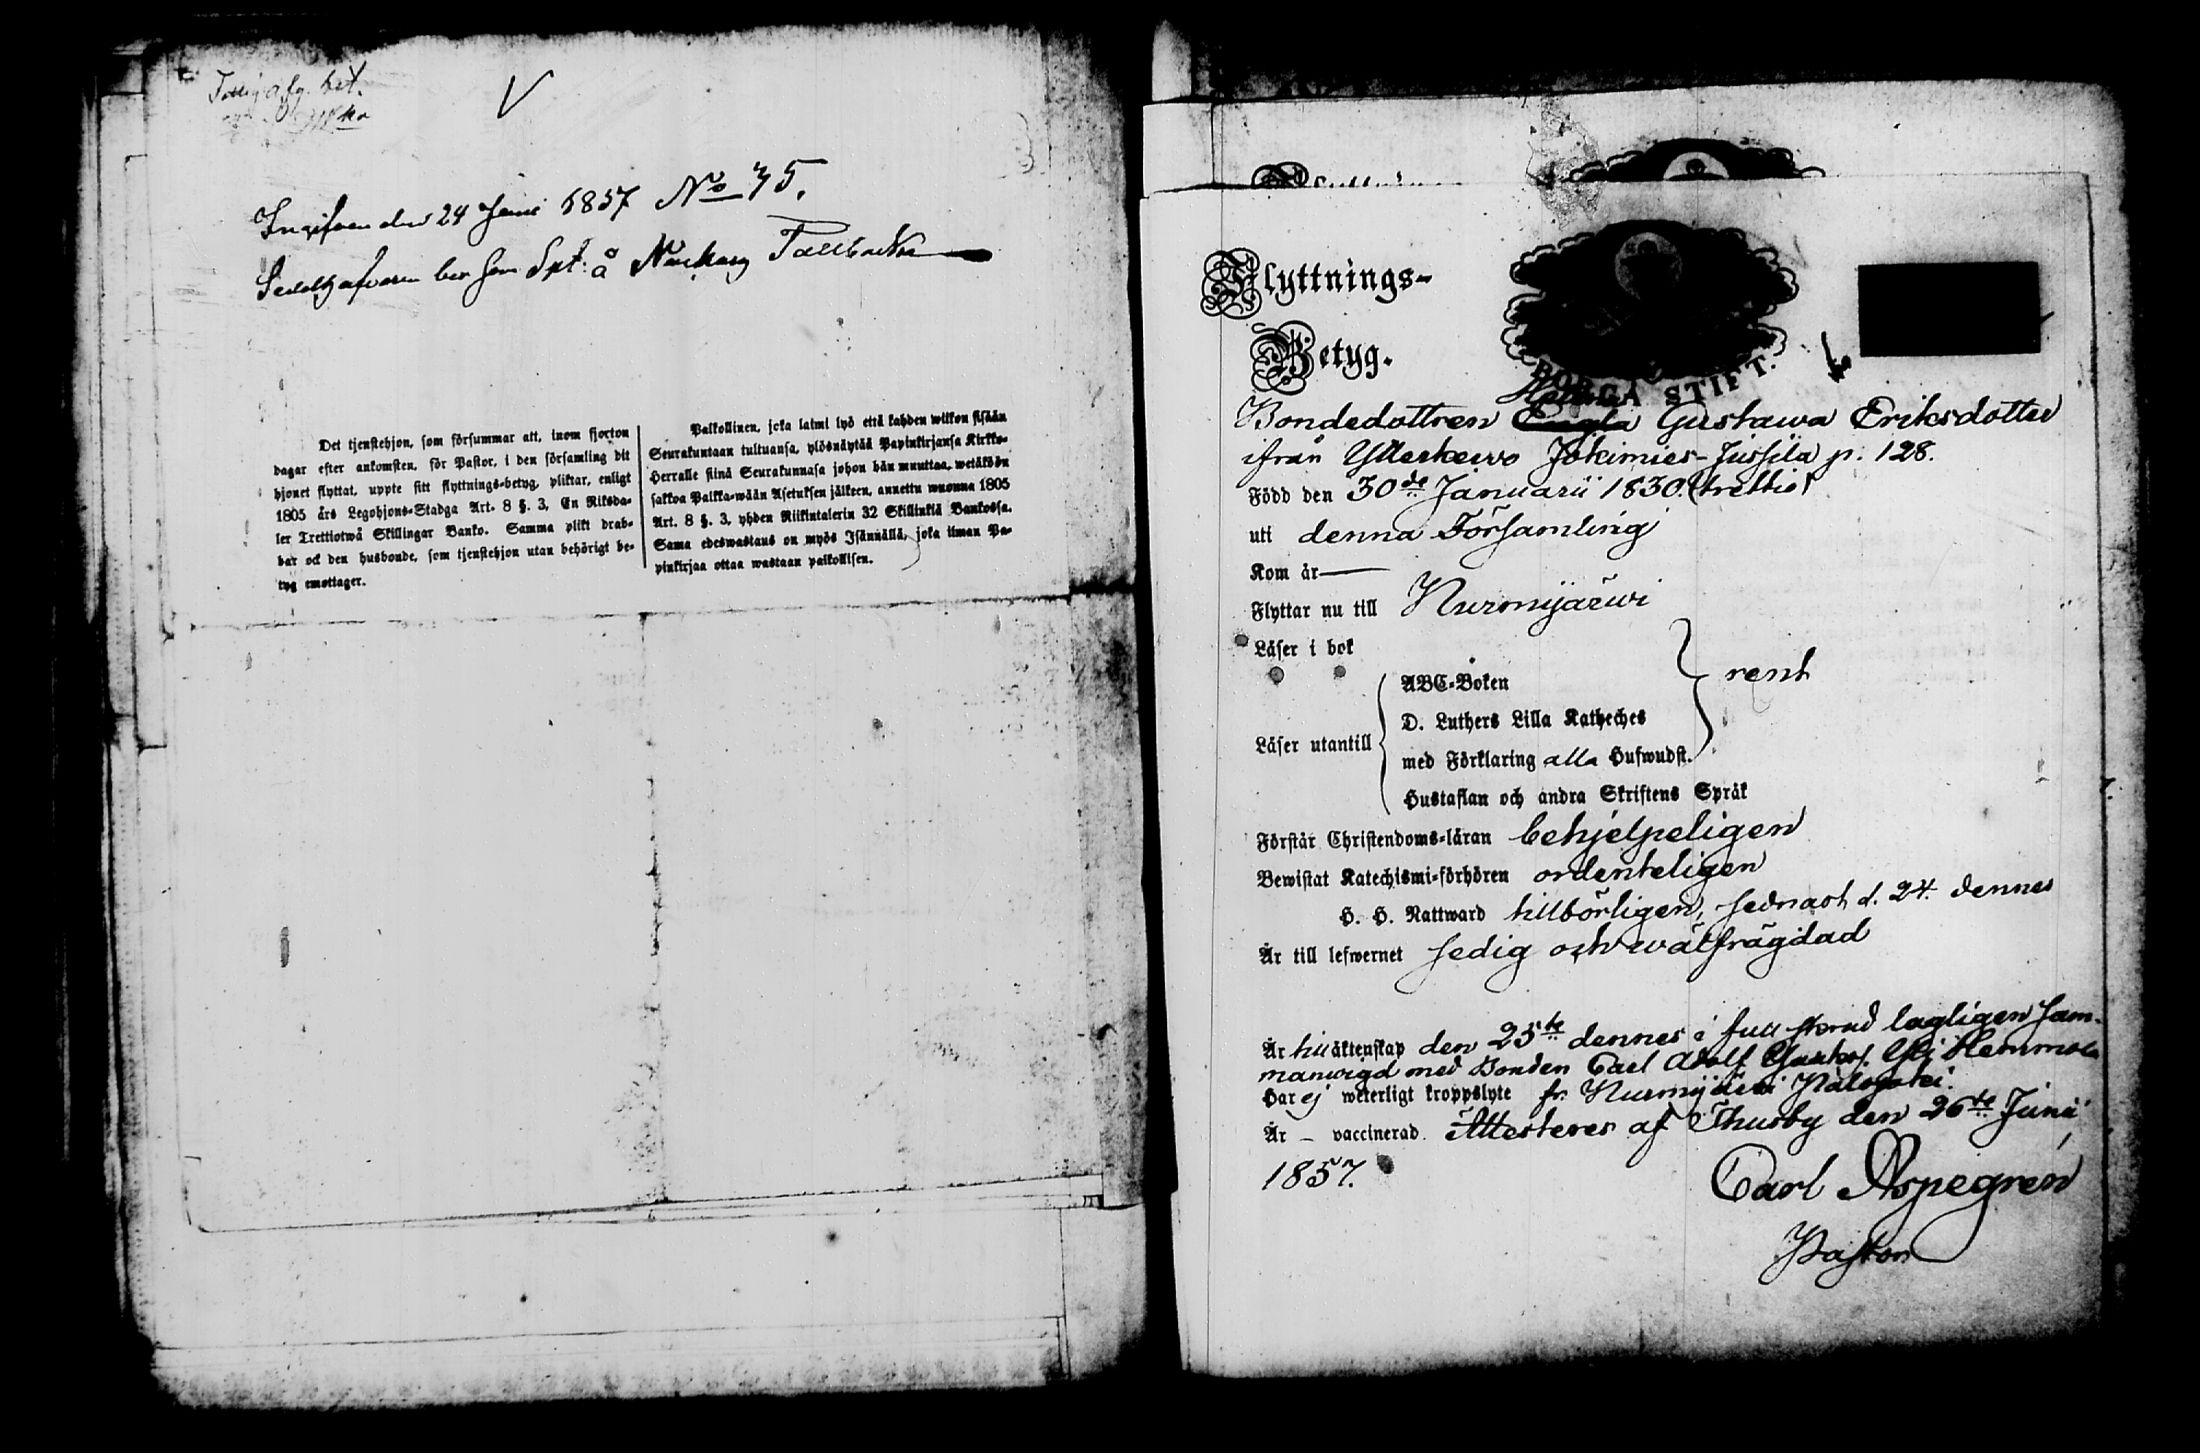 V
Ingifven den 24 Juni 1857 No 75.
Sedelgifveren bor som Spt: å Tallbacka
Det tjenstehjon, som försummar att, inom fjorton
dagar efter ankomsten, för Pastor, i den församling dit
hjonet flyttat, uppte sitt flyttnings-betyg, pliktar, enligt
1805 års Legohjons-Stadga Art. 8 §. 3, En Riksda-
ler Trettiotwå Skillingar Banko. Samma plikt drab-
bar ock den husbonde, som tjenstehjon utan behörigt be-
tyg emottager.
Palkollinen, joka laimi lyö että kahden wiikon sisään
Seurakuntaan tultuansa, ylösnäytää Papinkirjansa Kirkko-
Herralle siinä Seurakunnasa johon hän muuttaa, wetäköön
sakkoa Palkka-wään Asetuksen jälkeen, annettu wuonna 1805
Art. 8 §. 3, yhden Riikintalerin 32 Skillinkiä Bankossa.
Sama edeswastaus on myös Isännällä, joka ilman Pa-
pinkirjaa ottaa wastaan palkollisen.
Flyttnings-
Betyg.
BORGÅ STIFT.
Bondedottren Gustawa Eriksdotter
ifrån Ytterkerwo Jokimies-Jussila p. 128.
Född den 30de Januarii 1830 (trettio)
uti denna Församling
Kom år —
Flyttar nu till Nurmijärwi
Läser i bok
Läser utantill
ABC-Boken
D. Luthers Lilla Katheches
med Förklaring alla Hufwudst.
Hustaflan och andra Skriftens Språk
rent
Förstår Christendoms-läran behjelpeligen
Bewistat Katechismi-förhören ordenteligen
H. H. Nattward tillbörligen, sednast d. 24. dennes
Är till lefwernet sedig och wälfrägdad
Är till äktenskap den 25te dennes i full stånd lagligen sam-
manwigd med Bonden Carl Adolf Yli Hemmola
Har ej weterligt kroppslyte fr. Nurmijärwi Palojoki.
Är – vaccinerad. Attesteres af Thusby den 26te Junii
1857.
Carl Aspegren
Pastor